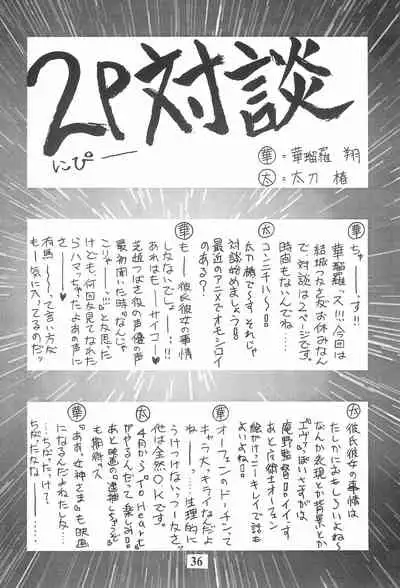 2P対談
にぴー
華=華瑠羅 翔
太=太刀 椿
華 ちゃーーす!!
華瑠羅ース!!!今回は
結城つなさお休みなん
で対談は2ページです。
時間もないんでね…
太 コンニチハ〜!!
太刀椿で〜す それじゃ
対談始めましょう!!
最近のアニメでオモシロイ
のある?
華 もー彼氏彼女の事情
しかないでしょーー!!
あれはもーサイコー♥
芝姫つばさ役の声優の声
最初聞いた時「なんじゃ
こりゃーー!!!」と思った
けども、何回も見てなれた
らハマッちゃったよあの声に
さー♥
有馬〜〜って言い方が
もー気に入ってるのだ!!
太 彼氏彼女の事情は
たしかにおもしろいよね〜
なんか表現とか背景とか
「エヴァ」っぽいさすが
庵野監督!!イイっす
あと反術士オーフェン
絵がけっこーキレイで話も
よいよね!!
華 オーフェンのドーチンって
キャラ大ーキライなんだよ
ねーー!!生理的に
うけつけないっつーかさ。
他は全然OKです。
太 4月から「To Heart」
がやるんだって楽しみ!!
あと映画の「逮捕しちゃうぞ」
も期待ス
華 「ああっ女神さまっ」も映画
になるんだよねたしか…
…ちがったけ?、
ちがったかなー
36